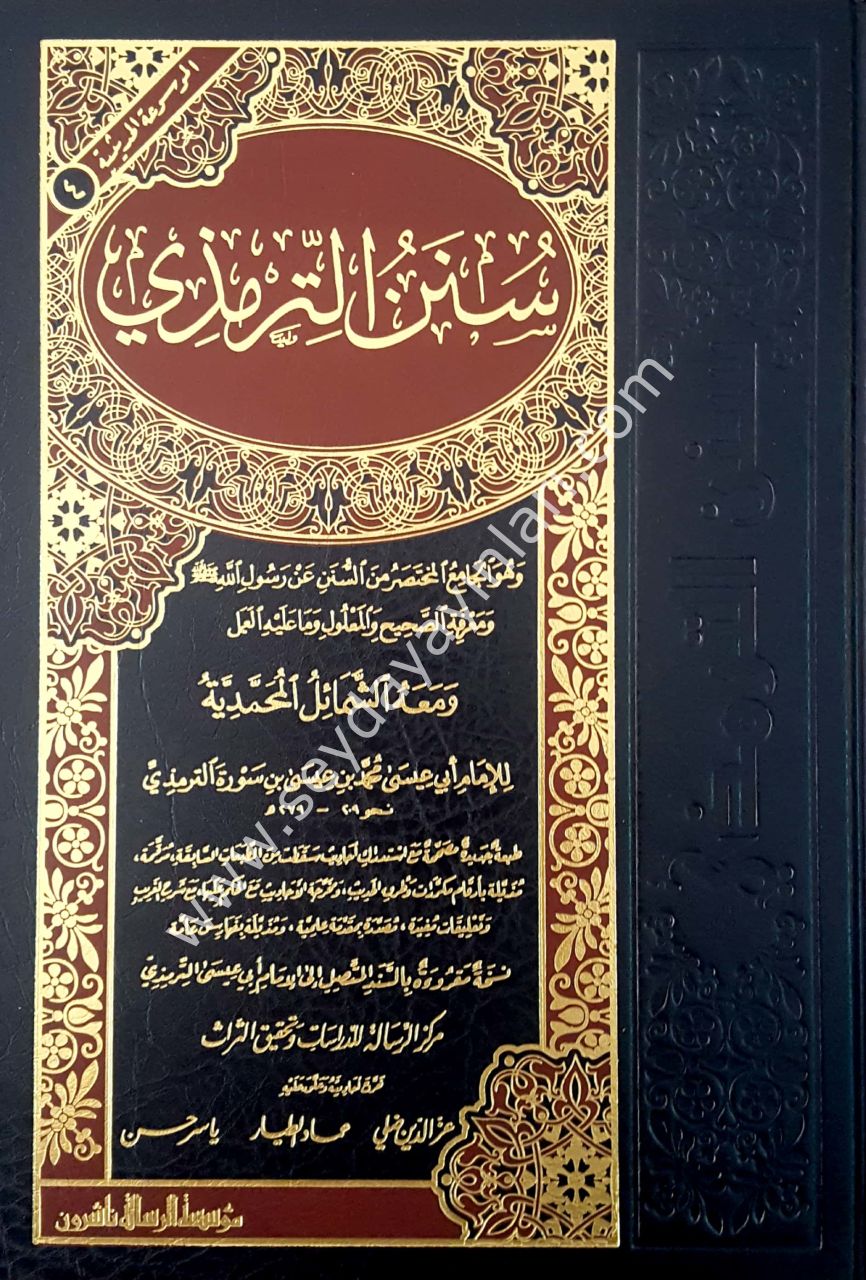 الموسوعة الحديثية
٤
سُنَنُ التِّرمِذِي
وَهُوَ الجَامِعُ المُخْتَصَرُ مِنَ السُّنَنِ عَنْ رَسُولِ اللَّهِ ﷺ
وَمَعْرِفَةِ الصَّحِيحِ وَالمَعْلُولِ وَمَا عَلَيْهِ العَمَل
وَمَعَهُ الشَّمَائِلُ المُحَمَّدِيَّة
لِلإمَامِ أبي عِيسَىٰ مُحَمَّد بن عِيسَىٰ بن سَوْرَة التِّرمذيِّ
نحو ٢٠٩ - ٢٧٩ هـ
طبعة جديدة مصححة مع استدراك أحاديث سقطت من الطبعات السابقة، مرقّمة،
مُذيّلة بأرقام مكررات وطرق الحديث، ومخرجة الأحاديث مع الحكم عليها، مع شرح الغريب
وتعليقات مفيدة، مُصدّرة بمقدّمة علميّة، ومُذيّلة بفهارس عامّة
نسخةٌ مقروءةٌ بِالسَّنَدِ المتَّصِلِ إلى الإمَامِ أبي عِيسَىٰ التِّرمِذيِّ
مركز الرسالة للدراسات وتحقيق التراث
خرّج أحاديثه وعلّق عليه
عزّ الدين ضلي عماد الطيار ياسر حسن
مؤسسة الرسالة ناشرون
سنن الترمذي
www.seydayayinlari.com